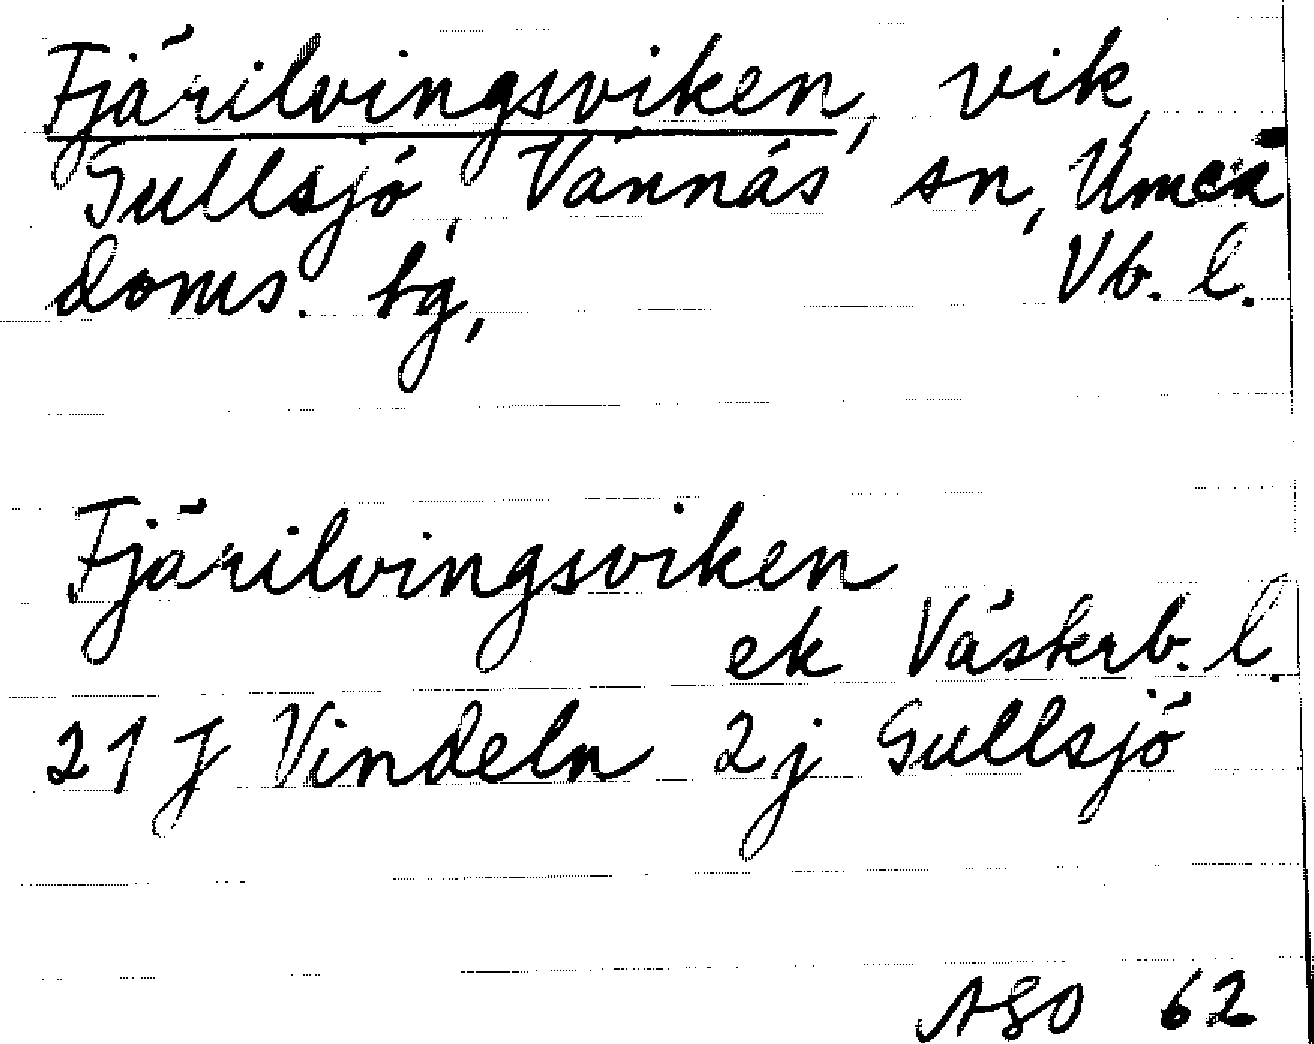 Fjärilvingsviken, vik,
Gullsjö, Vännäs sn, Umeå
doms. tg, Vb. l.
Fjärilvingsviken
ek Västerb. l.
21 J Vindeln 2j Gullsjö
ASO 62